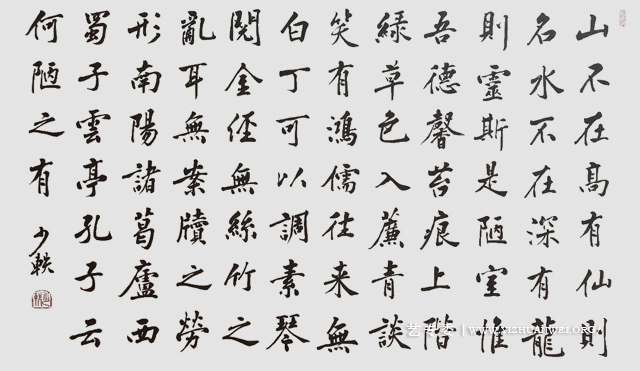 山不在高有仙則
名水不在深有龍
則靈斯是陋室惟
吾德馨苔痕上階
綠草色入簾青談
笑有鴻儒往来無
白丁可以調素琴
閱金經無絲竹之
亂耳無案牘之勞
形南陽諸葛廬西
蜀子雲亭孔子云
何陋之有
少軼